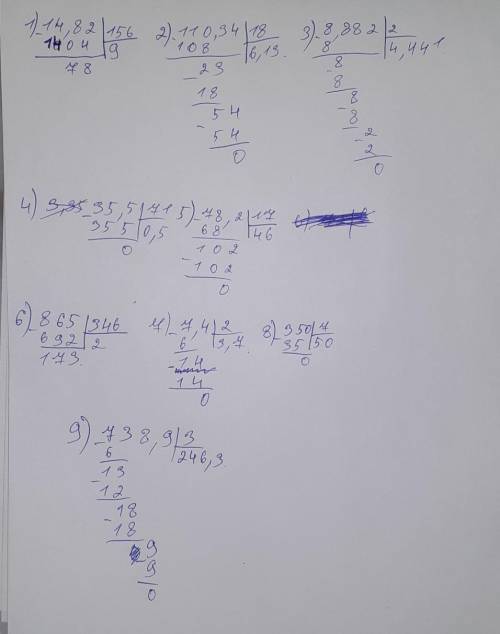 1) 14,82 | 156
1404 | 9
78
2) 110,34 | 18
108 | 6,13
23
18
54
54
0
3) 8,882 | 2
8 | 4,441
8
8
8
8
2
2
0
4) 35,5 | 71
355 | 0,5
0
5) 78,2 | 17
68 | 46
102
102
0
6) 865 | 346
692 | 2
173
7) 7,4 | 2
6 | 3,7
14
14
0
8) 350 | 7
35 | 50
0
9) 738,9 | 3
6 | 246,3
13
12
18
18
9
9
0